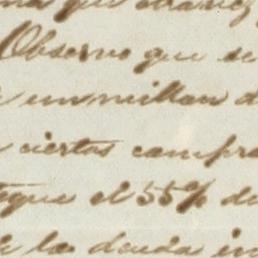 que otra vez
Observo que se
un millon d
ciertas compra
que el 55% de
la deuda in